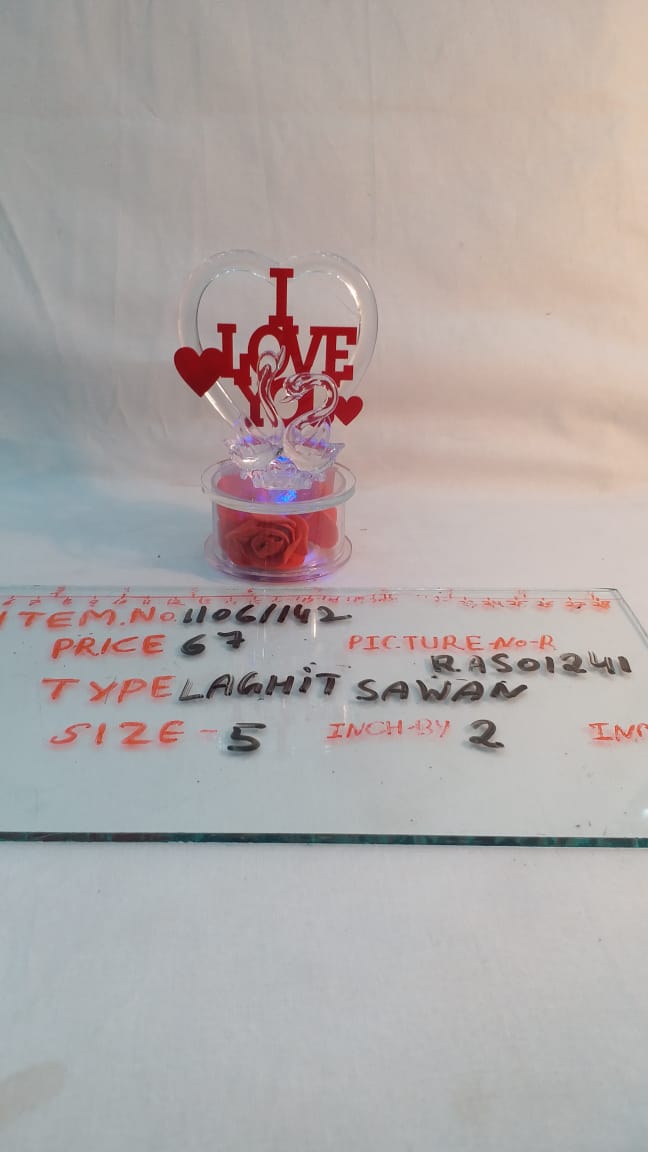 I
LOVE
YOU
ITEM.No.1106/142
PRICE 67 PICTURE-No-R
RASO1241
TYPE LAGHiT SAWAN
SIZE - 5 INCH-BY 2